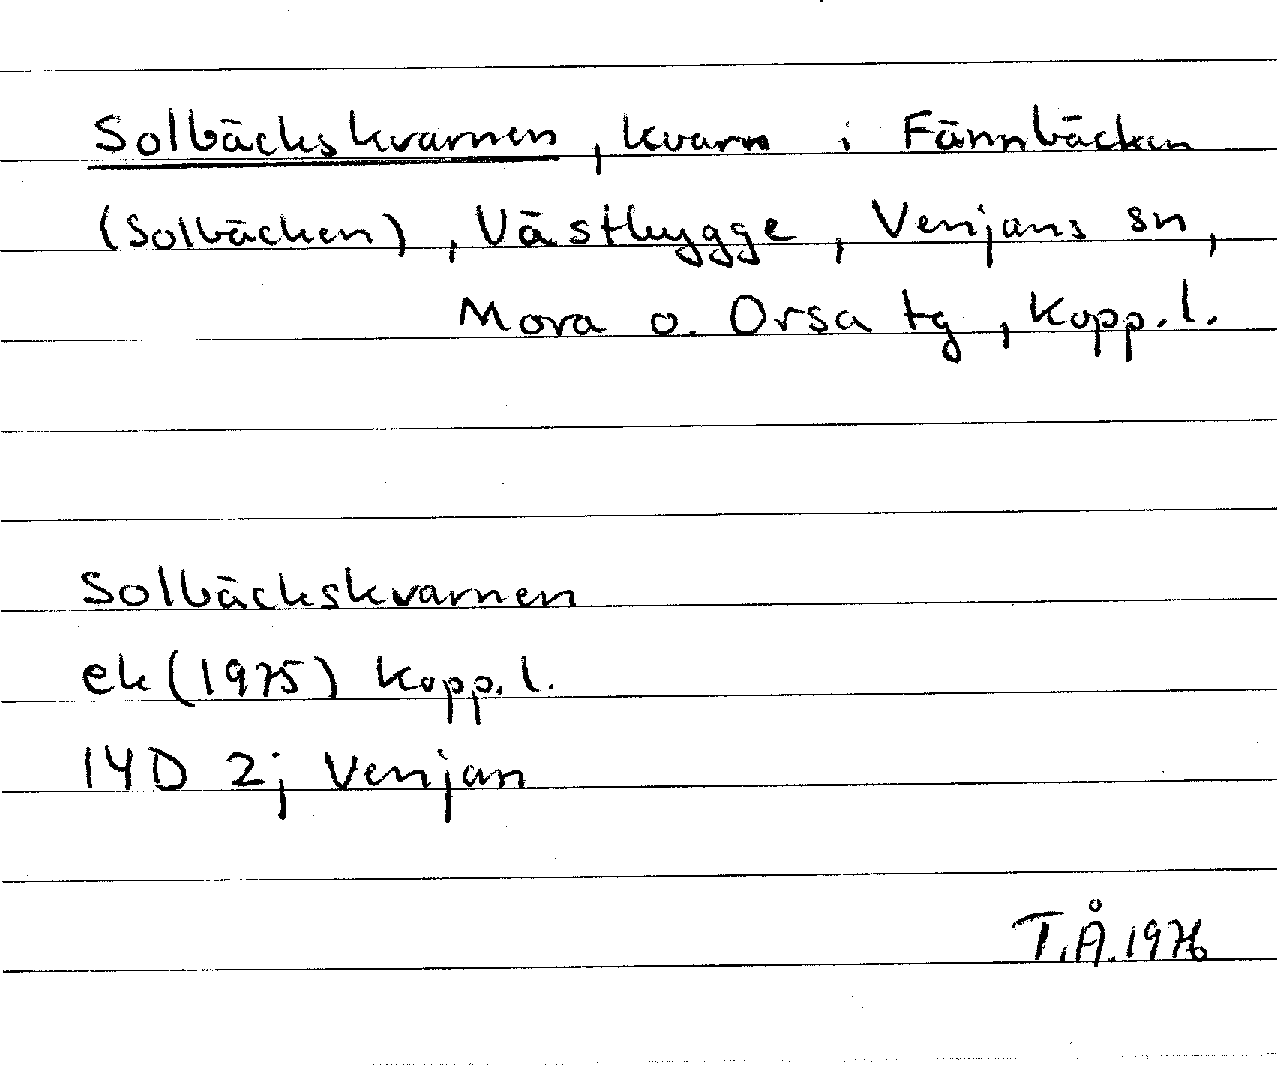 Solbäckskvarnen, kvarn i Fännbäcken
(Solbäcken), Västbygge, Venjans sn,
Mora o. Orsa tg, Kopp. l.
Solbäckskvarnen
ek (1975) Kopp. l.
14D 2j Venjan
T.Å. 1976